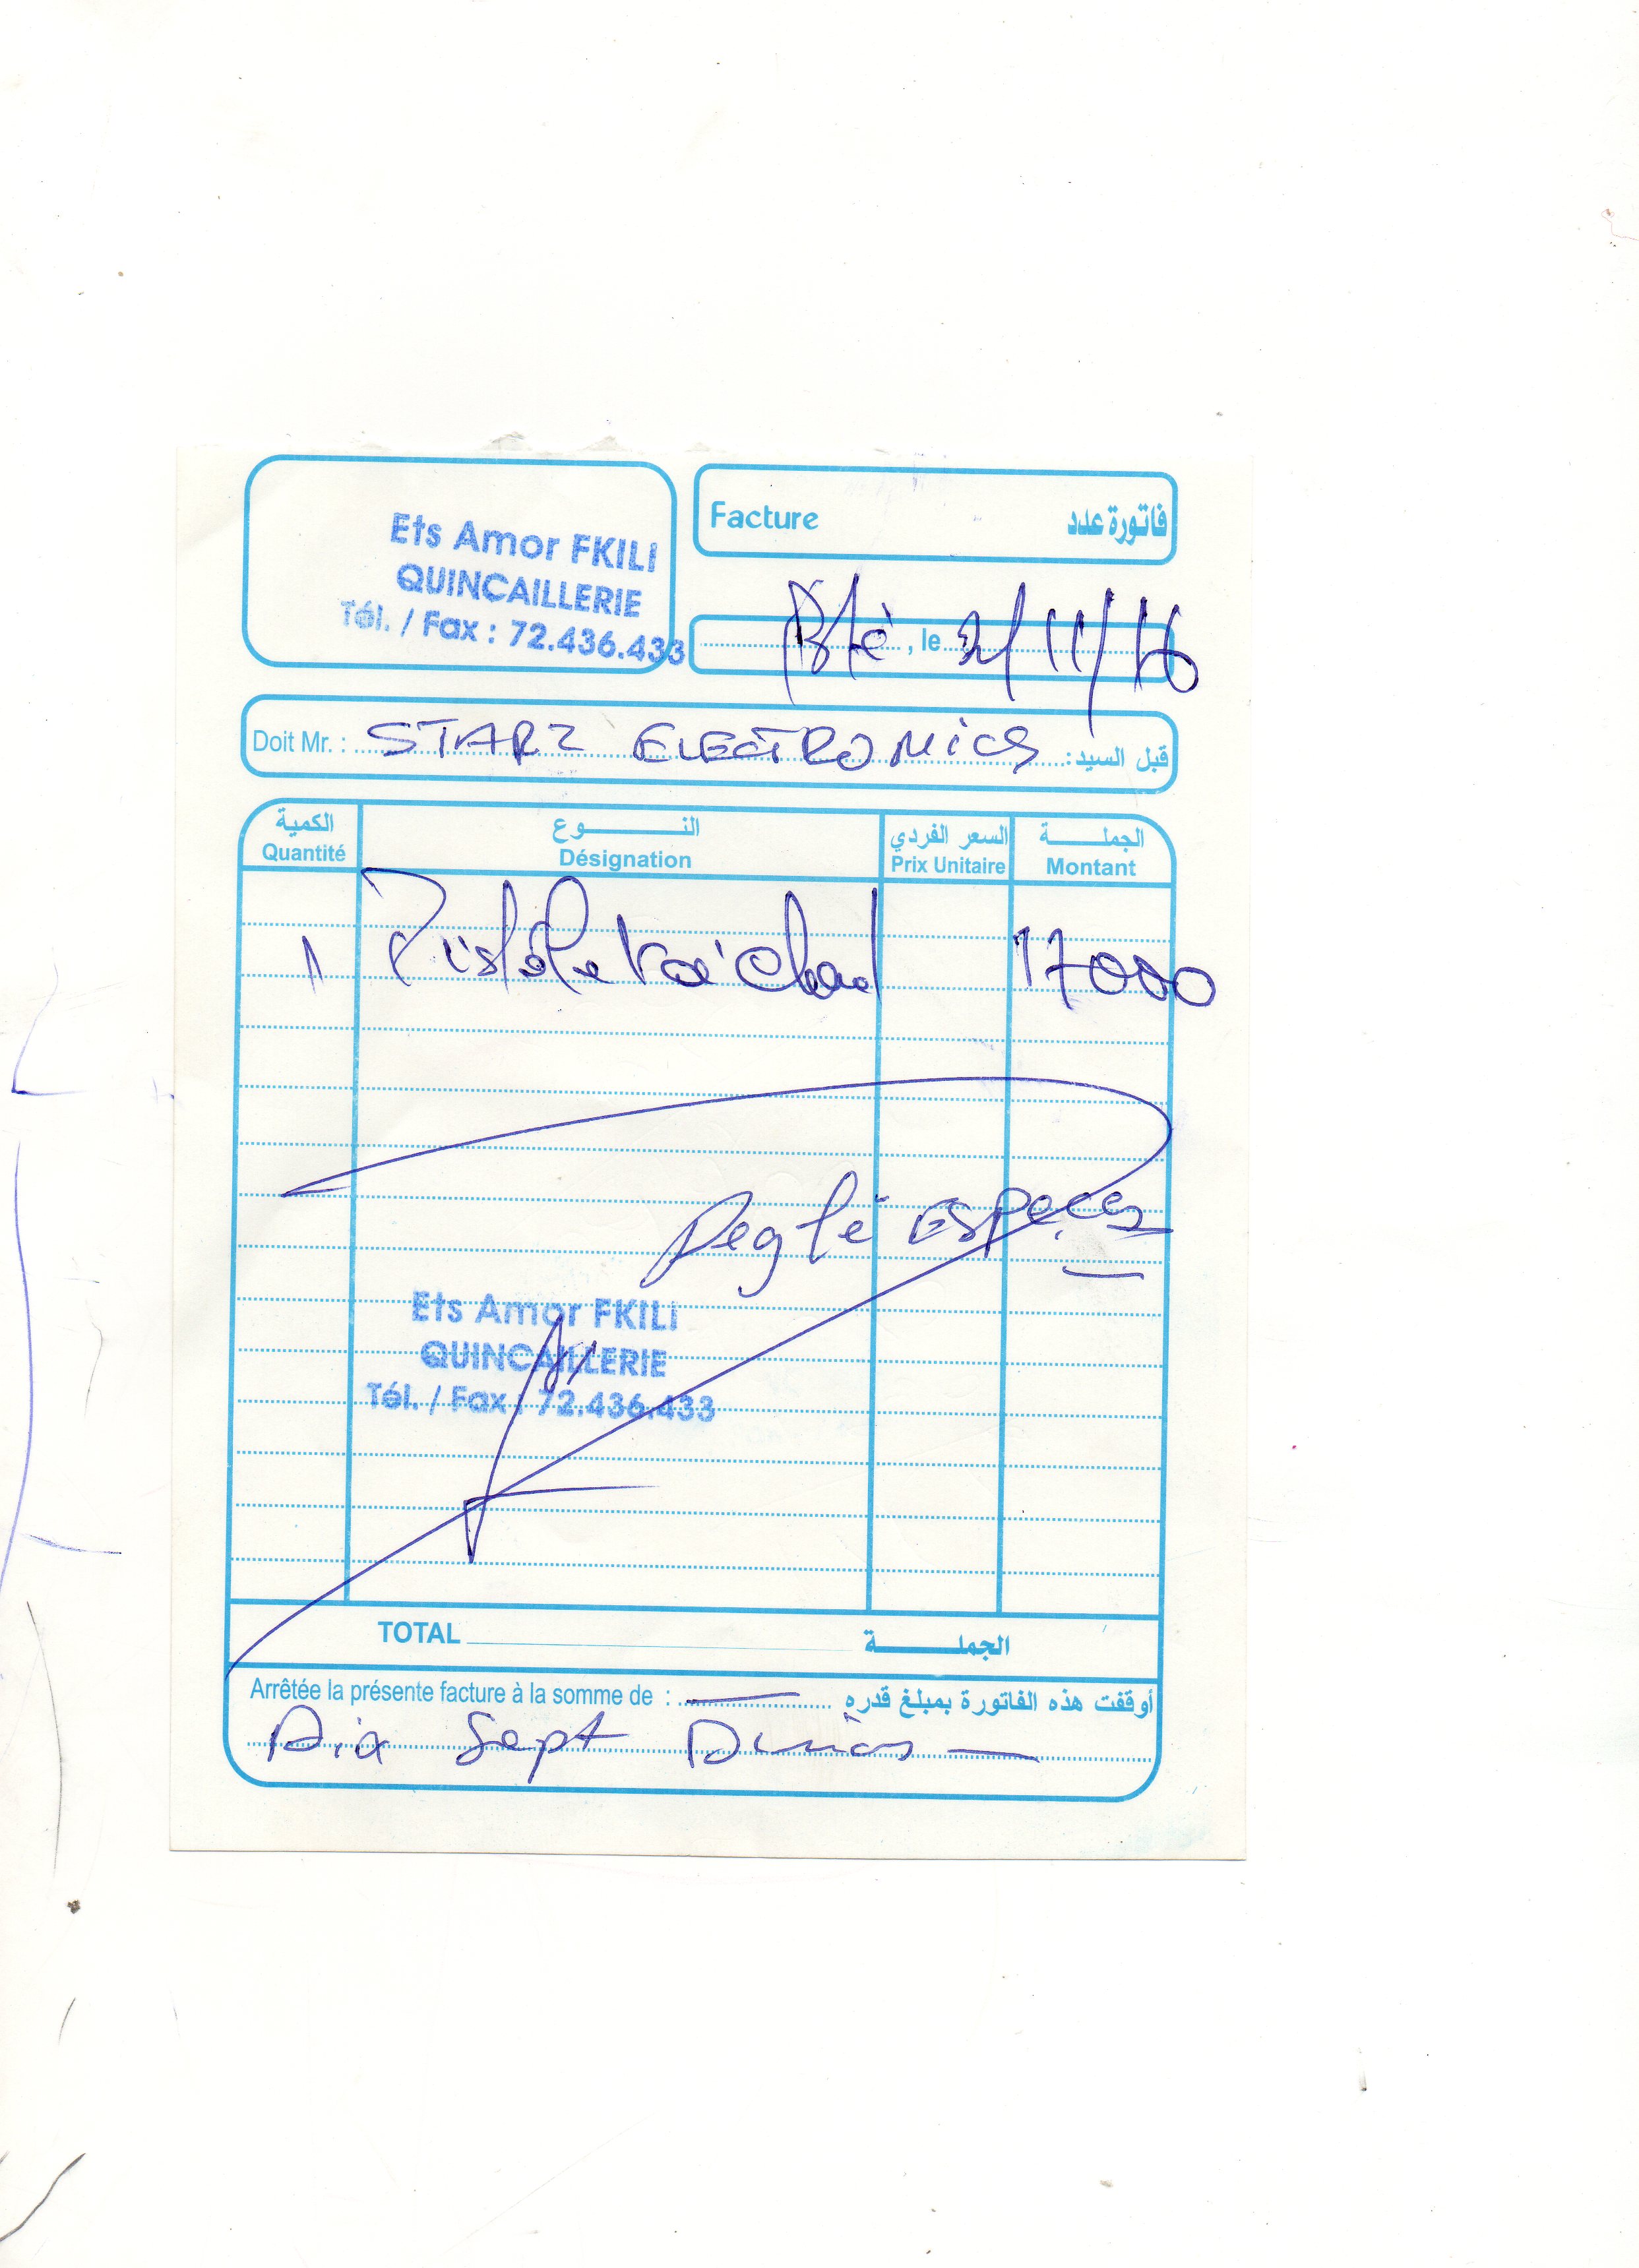 Ets Amor FKILI
QUINCAILLERIE
Tél. / Fax : 72.436.433
Facture فاتورة عدد
, le /11/16
Doit Mr. : STARZ ELECTRONICS قبل السيد:
الكمية النوع السعر الفردي الجملة
Quantité Désignation Prix Unitaire Montant
1 Pistolet 17000
Reglé especes
Ets Amor FKILI
QUINCAILLERIE
Tél. / Fax : 72.436.433
TOTAL الجملة
Arrêtée la présente facture à la somme de : أوقفت هذه الفاتورة بمبلغ قدره
Dix Sept Dinars